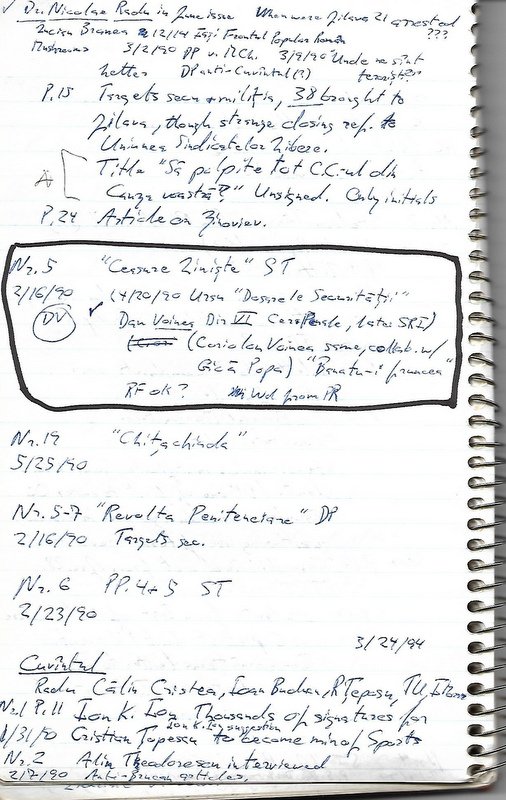 ✓ Dr. Nicolae Radu in June issue When were Jilava 21 arrested
???
Lucian Branea 12/14 Iași Frontul Popular Român
3/2/90 PP v. MCh. 3/9/90 Undeve sint
letter DP anti-Cuvintul (?) terorist?
P.15 Targets secu + miliția, 38 brought to
Jilava, though strange closing ref. to
Uniunea Sindicatelor Libere.
A Title "Să palpite tot C.C.-ul din
Cauza voastră?" Unsigned. Only initials
P.24 Article on Zinoviev.
Nr. 5 "Cenzure Liniște" ST
2/16/90 (4/20/90 Ursu "Dosarele Securității"
DV ✓ Dan Voinea Dir VI Cerc. Penale, later SRI)
(Coriolan Voinea same, collab. w/
Gică Popa) "Banatu-i fruncea"
RF ok? Wd from PR
Nr. 19 "Chițachinda"
5/25/90
Nr. 5-7 "Revolta Penitenciare" DP
2/16/90 Targets sec.
Nr. 6 PP. 4+5 ST
2/23/90
3/24/94
Cuvîntul
Radu Călin Cristea, Ioan Buduca, R Țeposu, TU,
Nr. 1 P. 11 Ion K. Ion Thousands of signatures for
Ion K. Ion suggestion
1/31/90 Cristian Țopescu to become min of Sports
Nr. 2 Alin Theodorescu interviewed
2/7/90 Anti-Brucan articles.